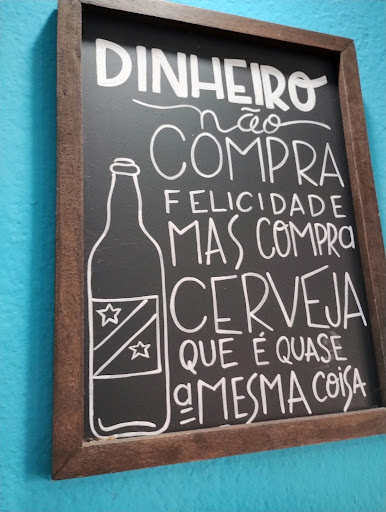 DINHEIRO
não
COMPRA
FELICIDADE
MAS COMPRA
CERVEJA
QUE É QUASE
a MESMA COISA